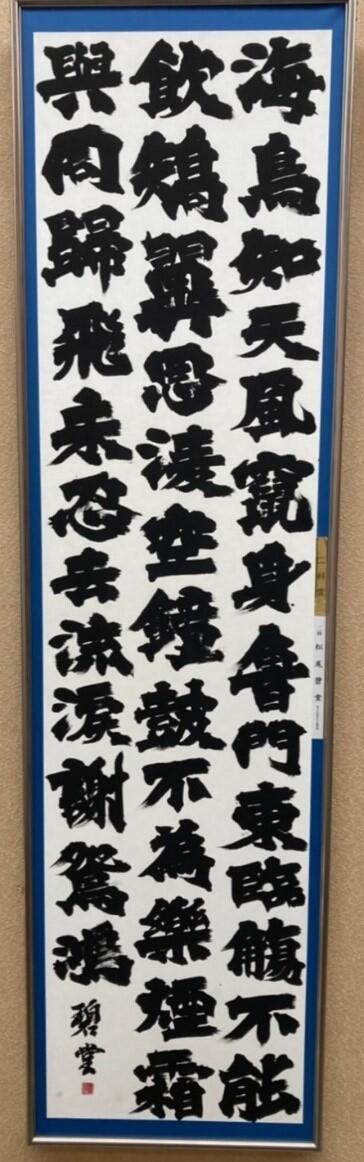 海鳥知天風竄身魯門東臨觴不能
飲矯翼思淩空鐘鼓不為樂煙霜
與同歸飛未忍去流淚謝鴛鴻
碧堂
松尾碧堂